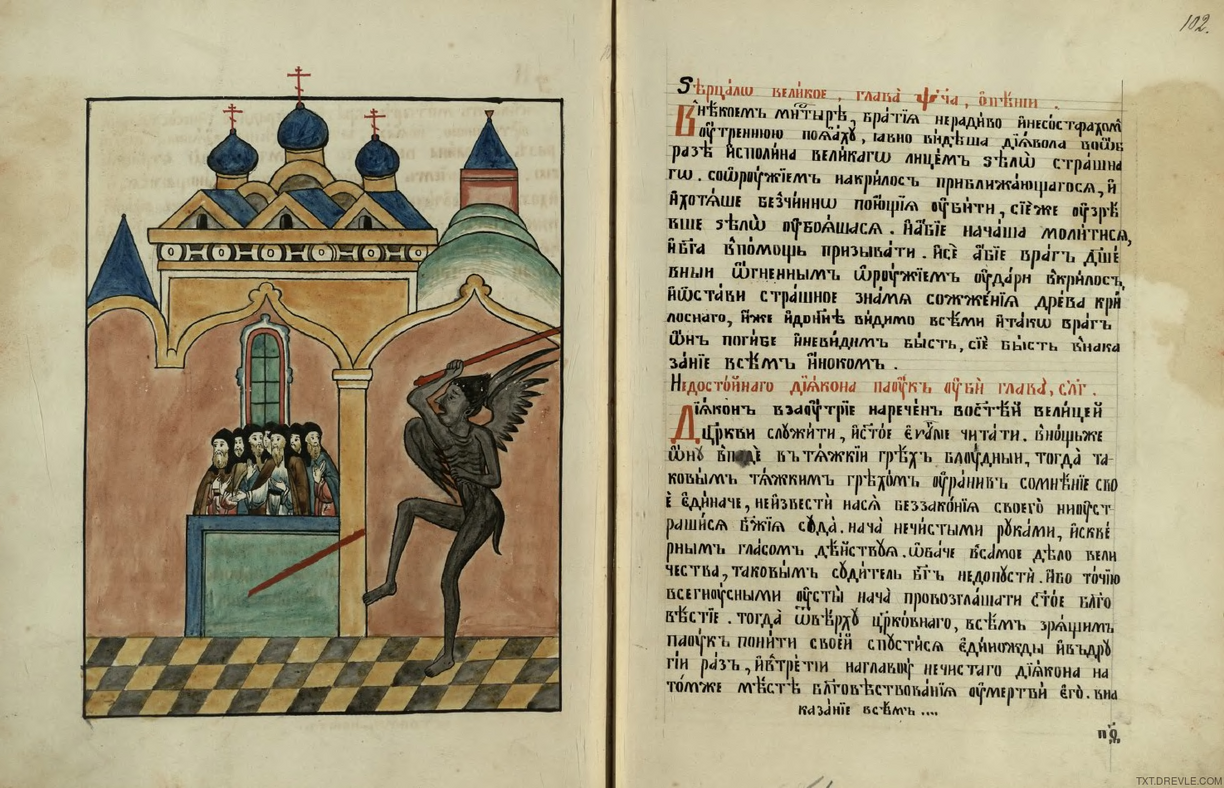 102.
Ѕѣрцалѡ великое, глава ѱ҃ча, ѡпѣнїи
Внѣкоемъ мн҃тырѣ, братїѧ нерадиво инесострахом
оутреннюю поѧхꙋ, ꙗвно видѣша дїѧвола воѡб
разѣ исполина великагѡ лицемъ ѕѣлѡ страшна
гѡ. соѡроужїемъ накрилосъ приближающагосѧ, и
ихотѧше безчиннѡ поющїѧ оубити, сїеже оузрѣ
вше ѕѣлѡ оубоѧшасѧ. иабїе начаша молитисѧ,
ибга впомощь призывати. исе абїе врагъ дш҃е
вныи ѡгненнымъ ѡроужїемъ оудари вкрилосъ,
иѡстави страшное знамѧ сожженїѧ древа кри
лоснаго, иже идонн҃ѣ видимо всѣми итакѡ врагъ
ѡнъ погибе иневидимъ бысть, сїе бысть внака
занїе всѣмъ инокомъ.
Недостойнаго дїѧкона паоукъ оуби глава, сл҃г.
Дїѧконъ взаоутрїе нареченъ востѣи велицеи
цр҃кви слꙋжити, ист҃ое ев҃лїе читати. внощьже
ѡнꙋ впаде вътѧжкїи грѣхъ блоудныи, тогда та-
ковымъ тѧжкимъ грѣхомъ оуранивъ сомнѣнїе сво
е единаче, неизвести насѧ беззаконїѧ своего ниоуст
рашисѧ бж҃їѧ сꙋда. нача нечистыми рꙋками, искве
рнымъ гласомъ дѣйствꙋѧ. ѡбаче всамое дѣло вели
чества, таковымъ сꙋдитель бг҃ъ недопꙋсти. ибо точїю
всегноусными оусты нача провозглашати ст҃ое благо
вѣстїе. тогда ѿверхꙋ цр҃ковнаго, всѣмъ зрѧщимъ
паоукъ понити своеи спꙋстисѧ единожды ивъдрꙋ
гїи разъ, ивтретїи наглавоу нечистаго дїѧкона на
томже мѣстѣ бл҃говѣствованїѧ оумертви его. вна
казанїе всѣмъ....
TXT.DREVLE.COM